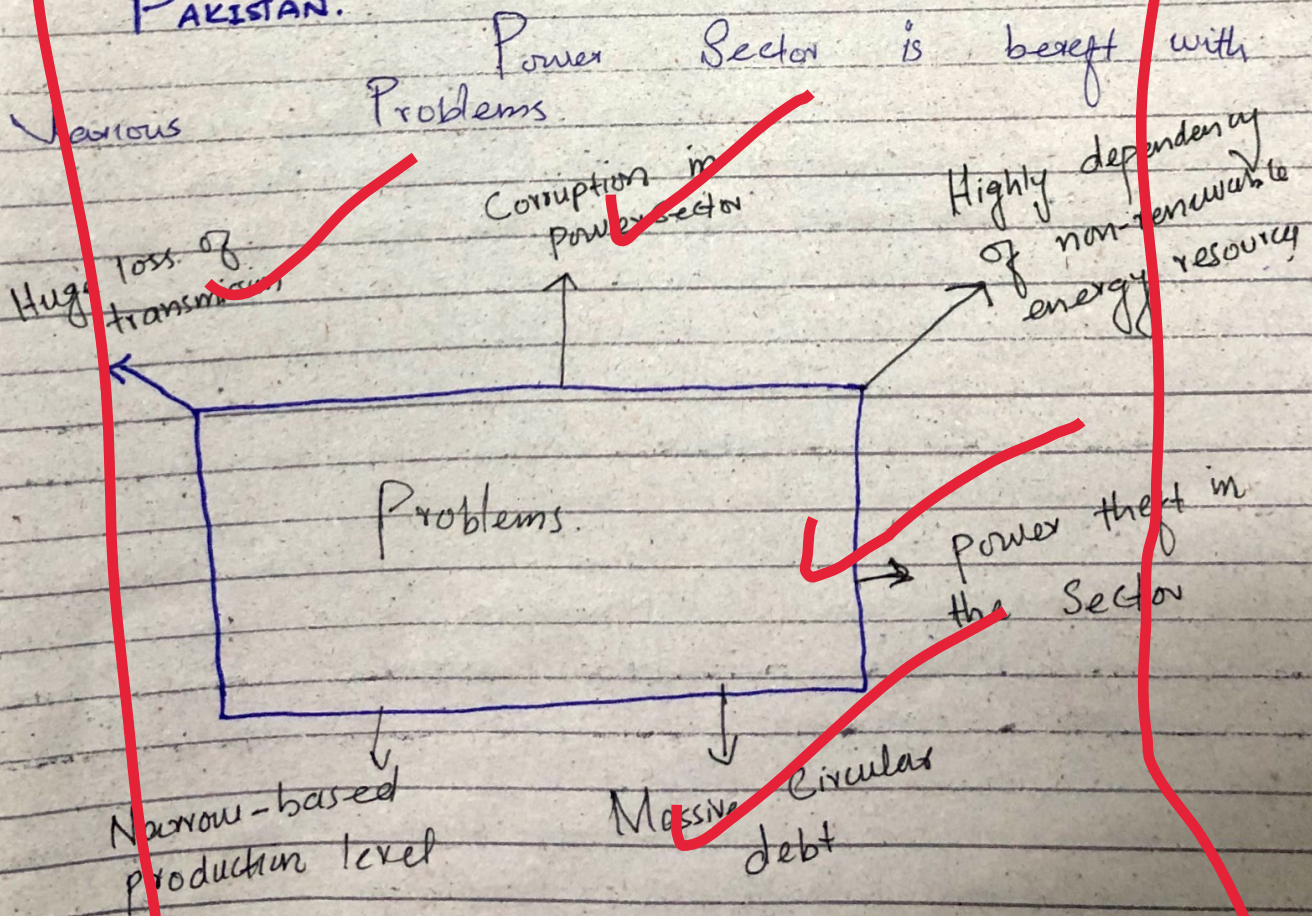 PAKISTAN.
Power Sector is bereft with
Various Problems.
Huge loss of
transmission
Corruption in
power sector
Highly dependency
of non-renewable
energy resources
Problems.
Power theft in
the Sector
Narrow-based
production level
Massive Circular
debt